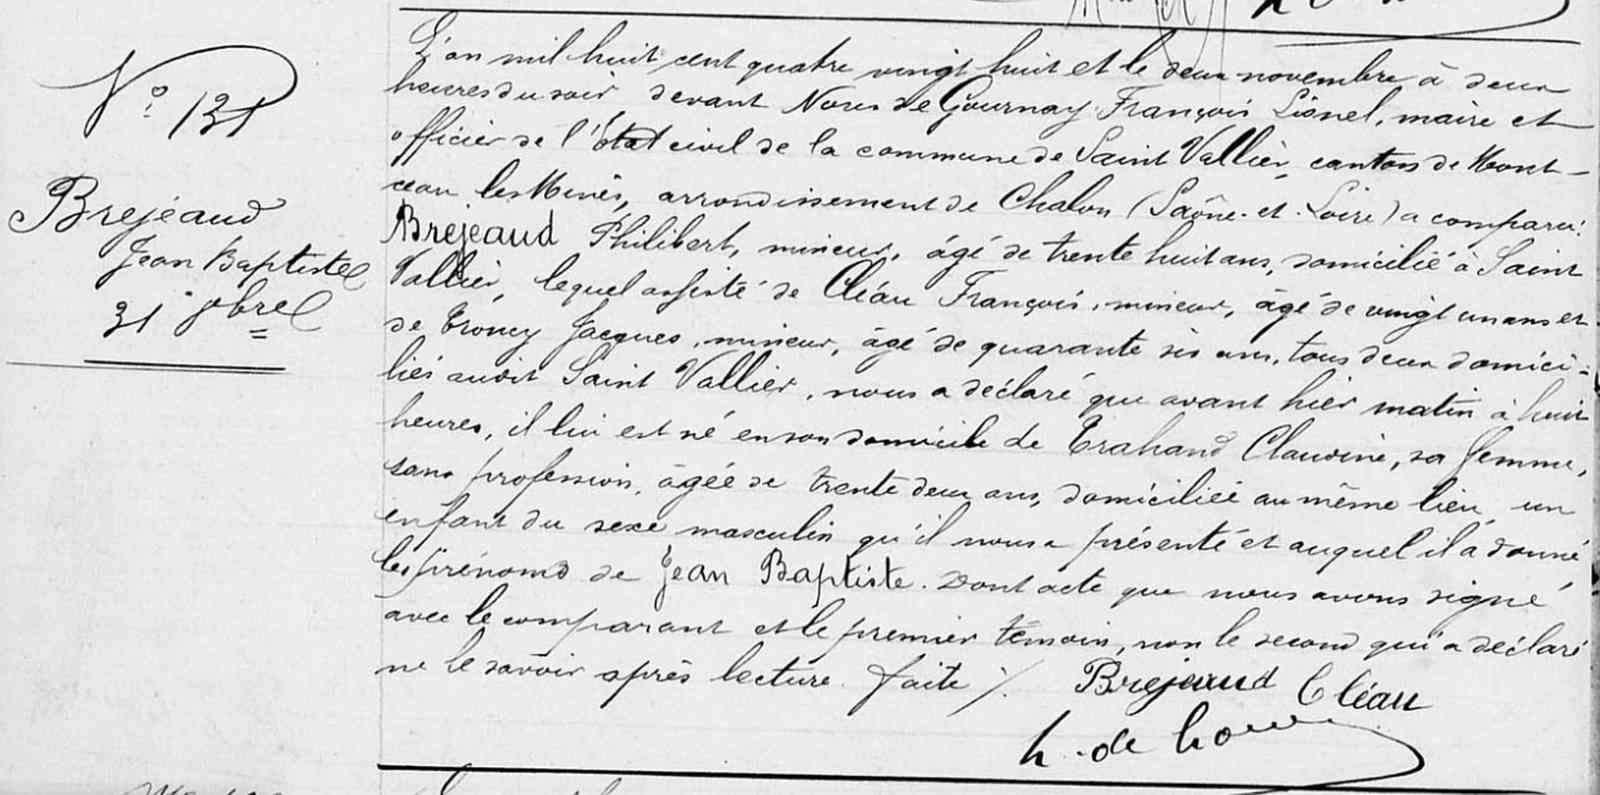 N° 131
Brejeaud
Jean Baptiste
31 8bre
L'an mil huit cent quatre vingt huit et le deux novembre à deux
heures du soir devant Nous de Gournay François Lionel, maire et
officier de l'état civil de la commune de Saint Vallier, canton de Mont-
ceau les Mines, arrondissement de Chalon (Saône-et-Loire) a comparu:
Brejeaud Philibert, mineur, âgé de trente huit ans, domicilié à Saint
Vallier, lequel assisté de Cléau François, mineur, âgé de vingt un ans et
de Troncy Jacques, mineur, âgé de quarante six ans, tous deux domici-
liés audit Saint Vallier, nous a déclaré que avant hier matin à huit
heures, il lui est né en son domicile de Trahand Claudine, sa femme,
sans profession, âgée de trente deux ans, domiciliée au même lieu, un
enfant du sexe masculin qu'il nous a présenté et auquel il a donné
les prénoms de Jean Baptiste. Dont acte que nous avons signé
avec le comparant et le premier témoin, non le second qui a déclaré
ne le savoir après lecture faite /.
Brejeaud Cléau